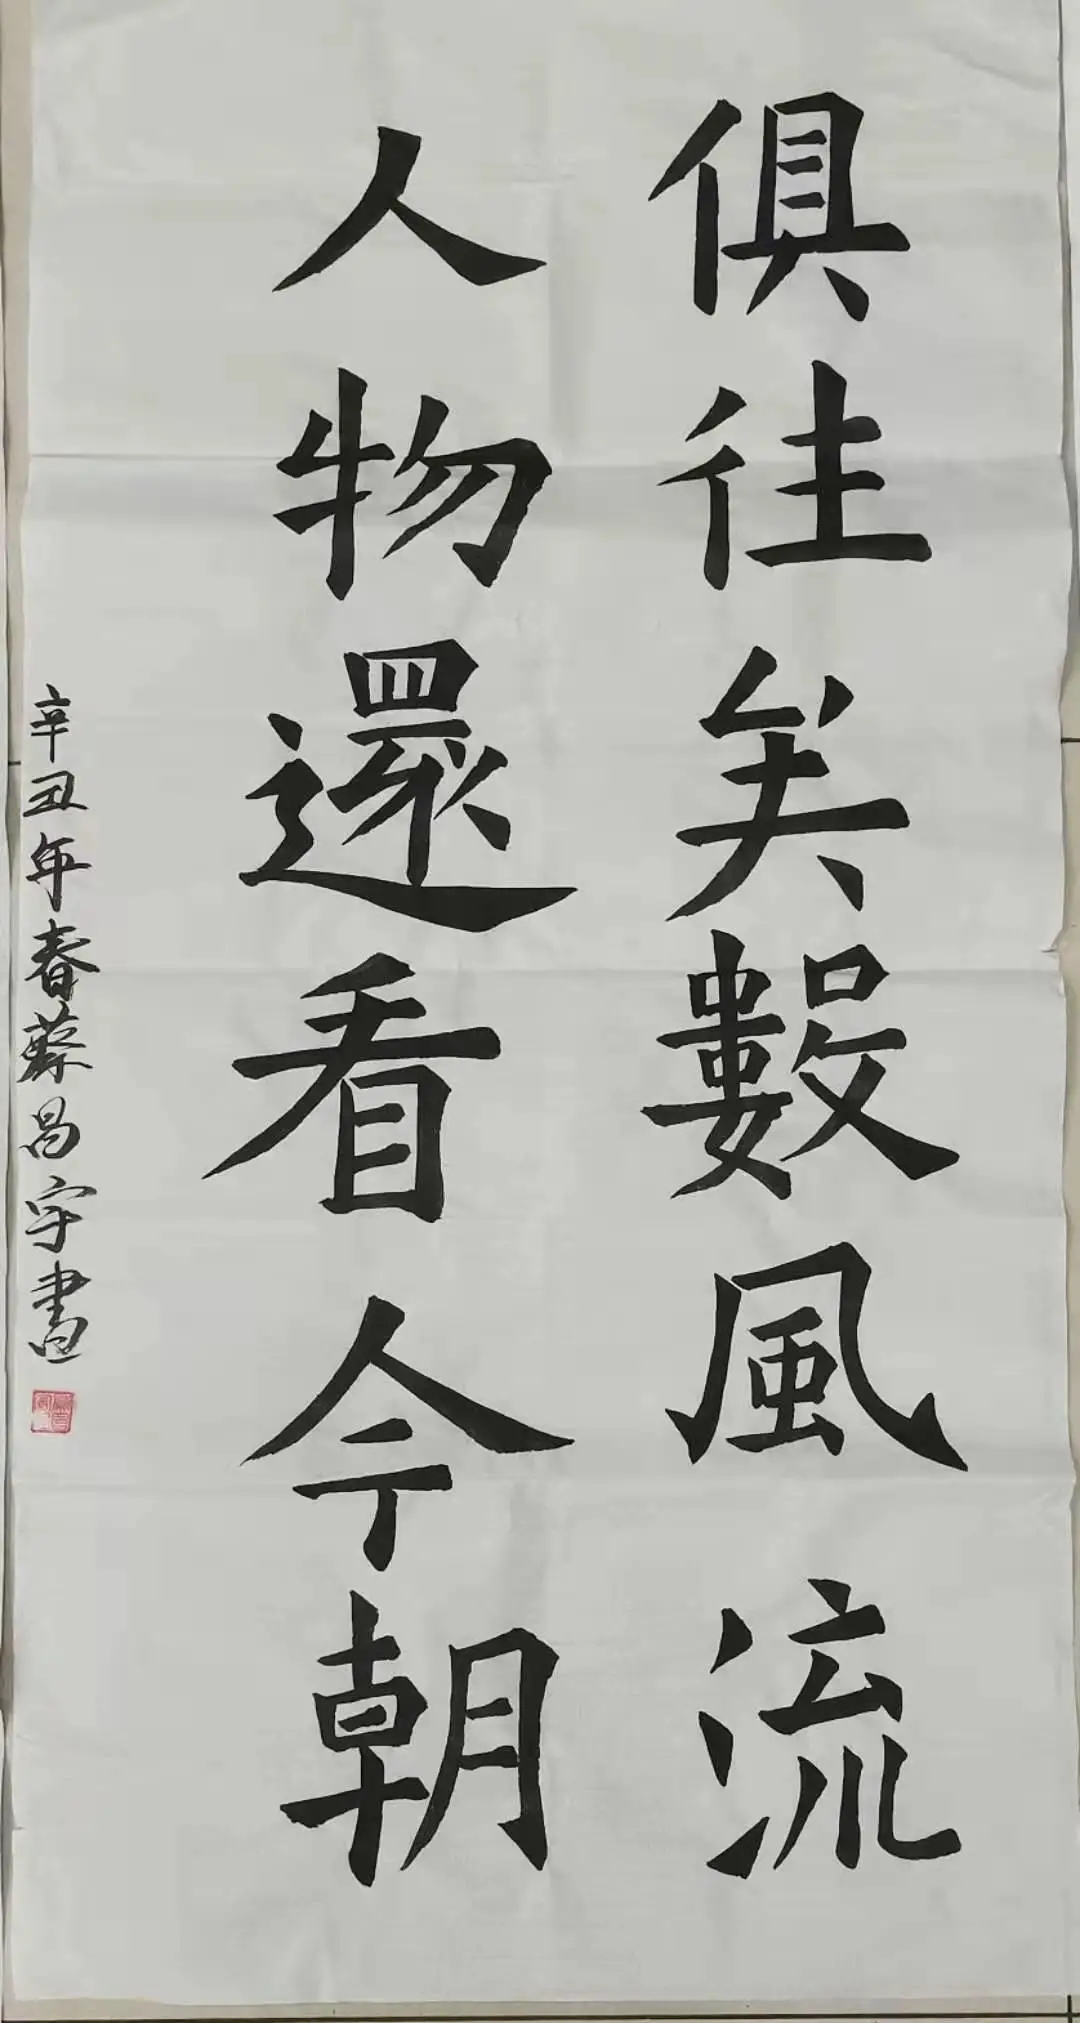 俱往矣數風流
人物還看今朝
辛丑年春蔡昌宇書